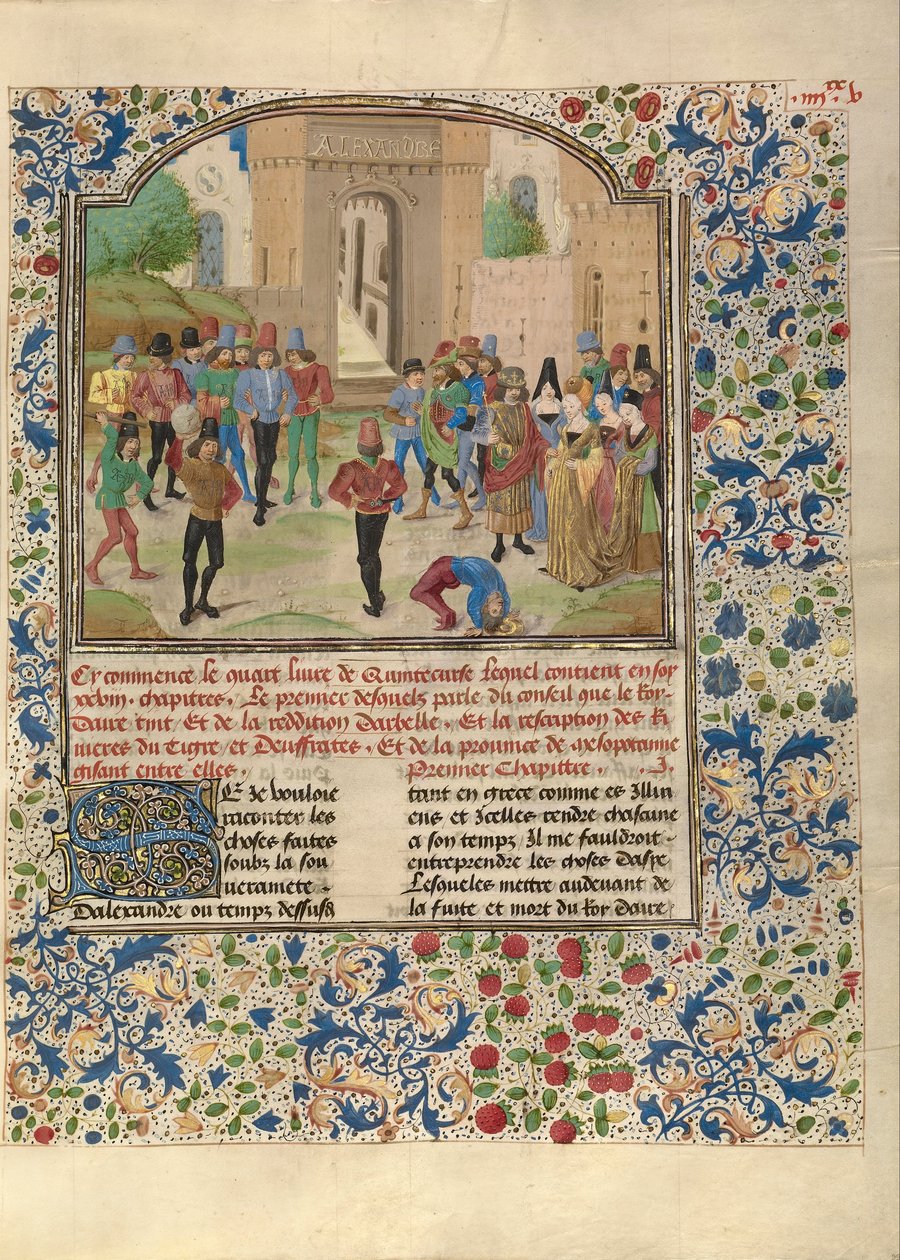 .iiii.xx v
ALEXANDRE
Cy commence le quart livre de Quintecurse lequel contient en soy
xxviii. chapitres. Le premier desquelz parle du conseil que le Roy
Daire tint / Et de la reddition Darbelle. Et la rescription des Ri
vieres du Tigre / et Deuffrates. Et de la province de Mesopotamie
gisant entre elles.
Premier Chapittre. .I.
SE Je vouloie
raconter les
choses faites
soubz la sou
verainete
Dalexandre ou temps dessusd
tant en grece comme es Illiri
ens et Icelles rendre chascune
a son temps Il me fauldroit
entreprendre les choses Dasye
Lesqueles mettre audevant de
la fuite et mort du Roy Daire